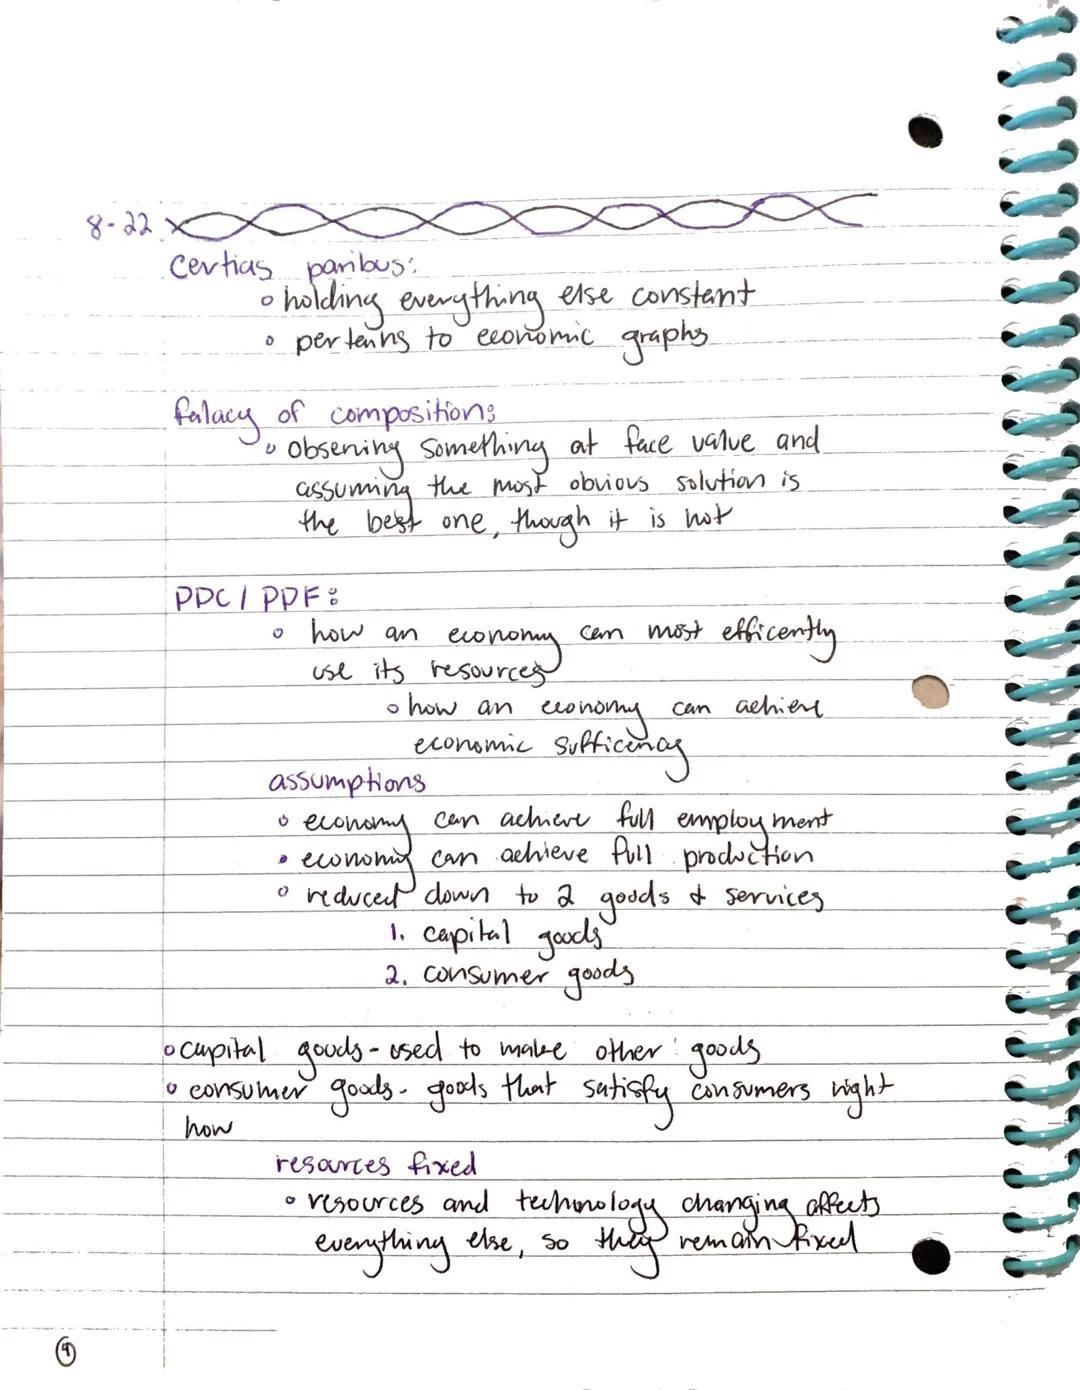 8-22
Certias paribus:
o holding everything else constant
o pertains to economic graphs
falacy of composition:
o observing something at face value and
assuming the most obvious solution is
the best one, though it is not
PDC / PDF:
o how an economy can most efficently
use its resources
o how an economy can achieve
economic sufficency
assumptions
o economy can achieve full employment
• economy can achieve full production
o reduced down to 2 goods & services
1. capital goods
2. consumer goods
o capital goods - used to make other goods
o consumer goods - goods that satisfy consumers right
now
resources fixed
o resources and technology changing affects
everything else, so they remain fixed
4